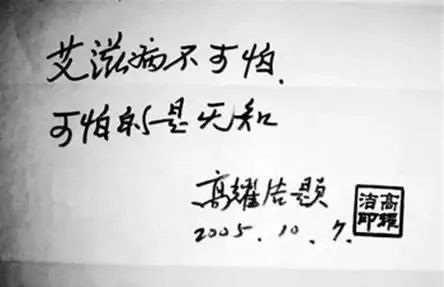 艾滋病不可怕.
可怕的是无知
高耀洁题
2005.10.7.
高耀洁印